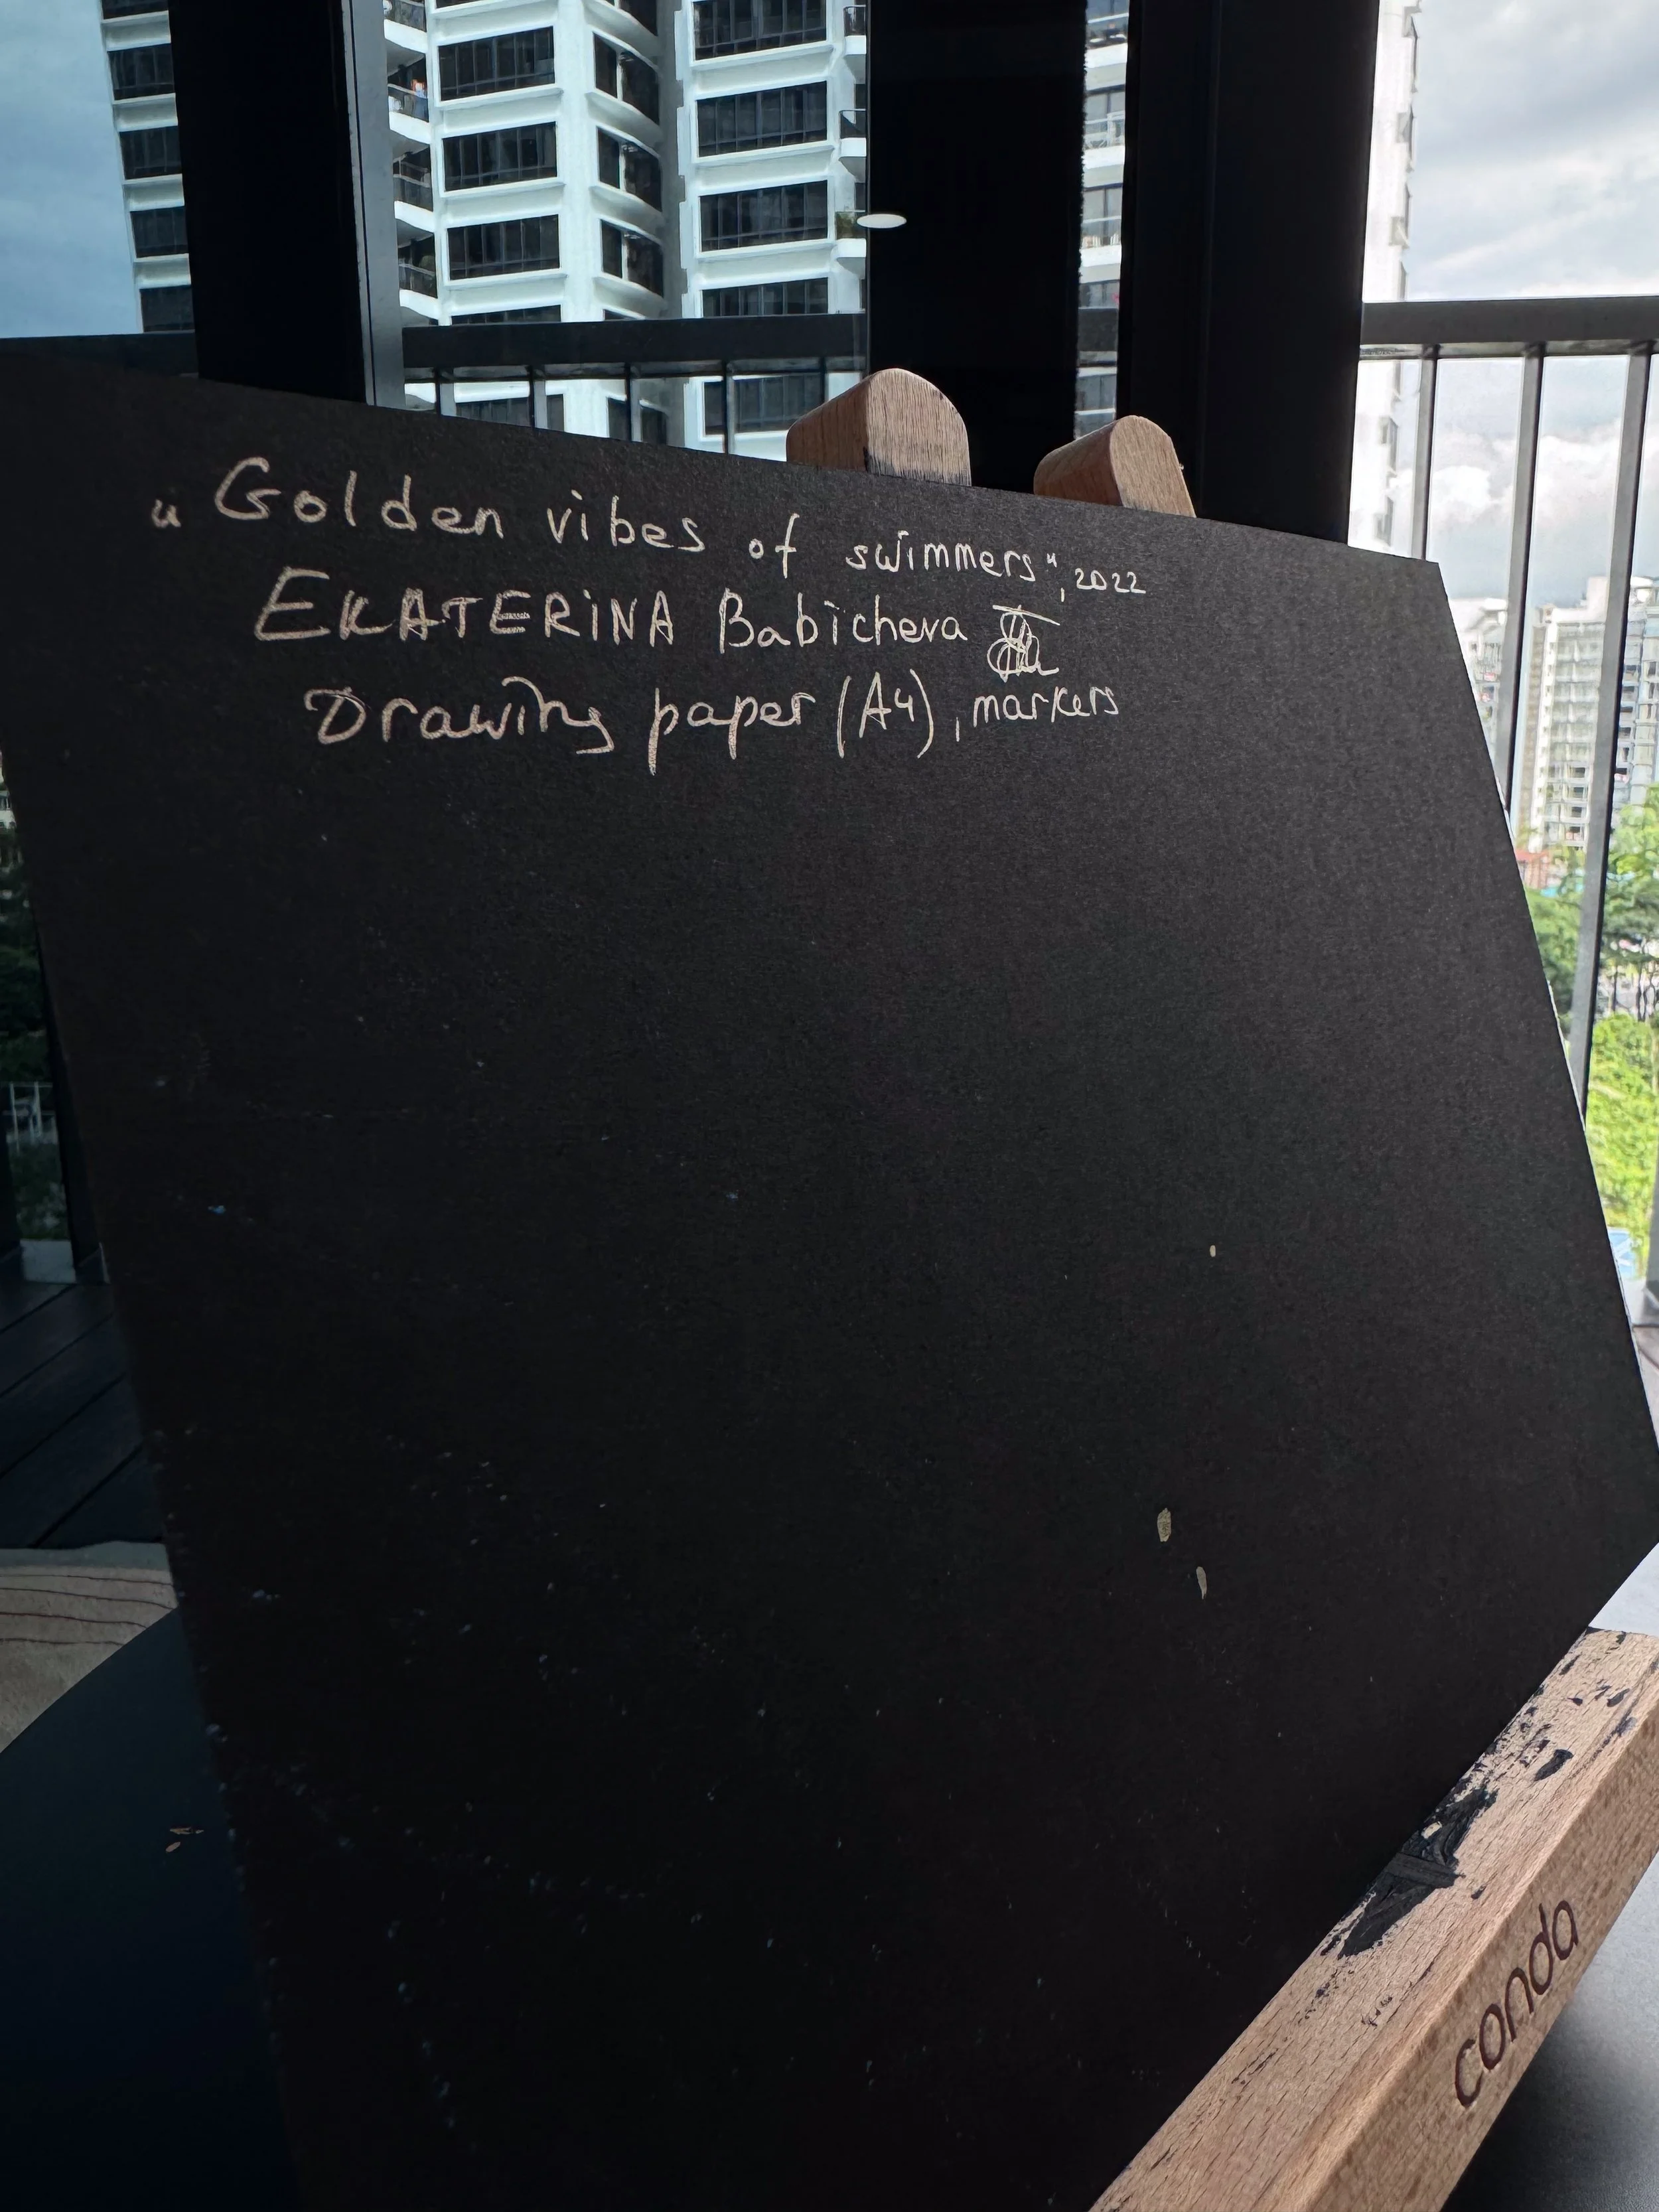 "Golden vibes of swimmers", 2022
EKATERINA Babicheva
Drawing paper (A4), markers
conda